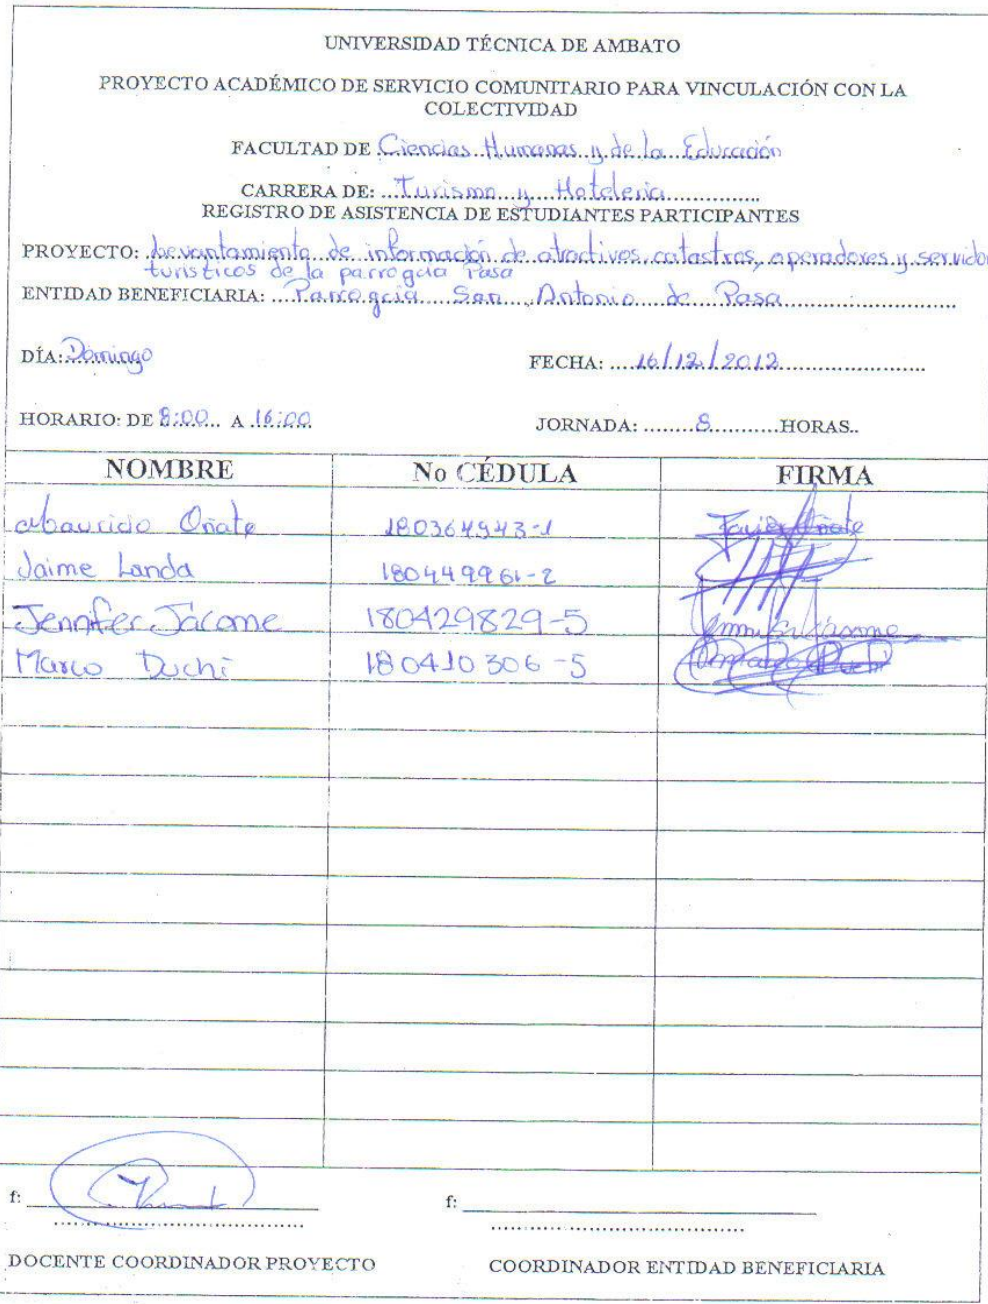 UNIVERSIDAD TÉCNICA DE AMBATO
PROYECTO ACADÉMICO DE SERVICIO COMUNITARIO PARA VINCULACIÓN CON LA
COLECTIVIDAD
FACULTAD DE Ciencias Humanas y de la Educación
CARRERA DE: Turismo y Hoteleria
REGISTRO DE ASISTENCIA DE ESTUDIANTES PARTICIPANTES
PROYECTO: Levantamiento de información de atractivos, catastros, operadores y servicios
turisticos de la parroquia Pasa
ENTIDAD BENEFICIARIA: Parroquia San Antonio de Pasa
DÍA: Domingo FECHA: 16/12/2012
HORARIO: DE 8:00 A 16:00 JORNADA: 8 HORAS..
NOMBRE No CÉDULA FIRMA
Mauricio Oñate 180364943-1 Javier Oñate
Jaime Landa 180449961-2
Jennifer Jácome 180429829-5 Jennifer Jácome
Marco Duchi 180410306-5
f: f:
DOCENTE COORDINADOR PROYECTO COORDINADOR ENTIDAD BENEFICIARIA